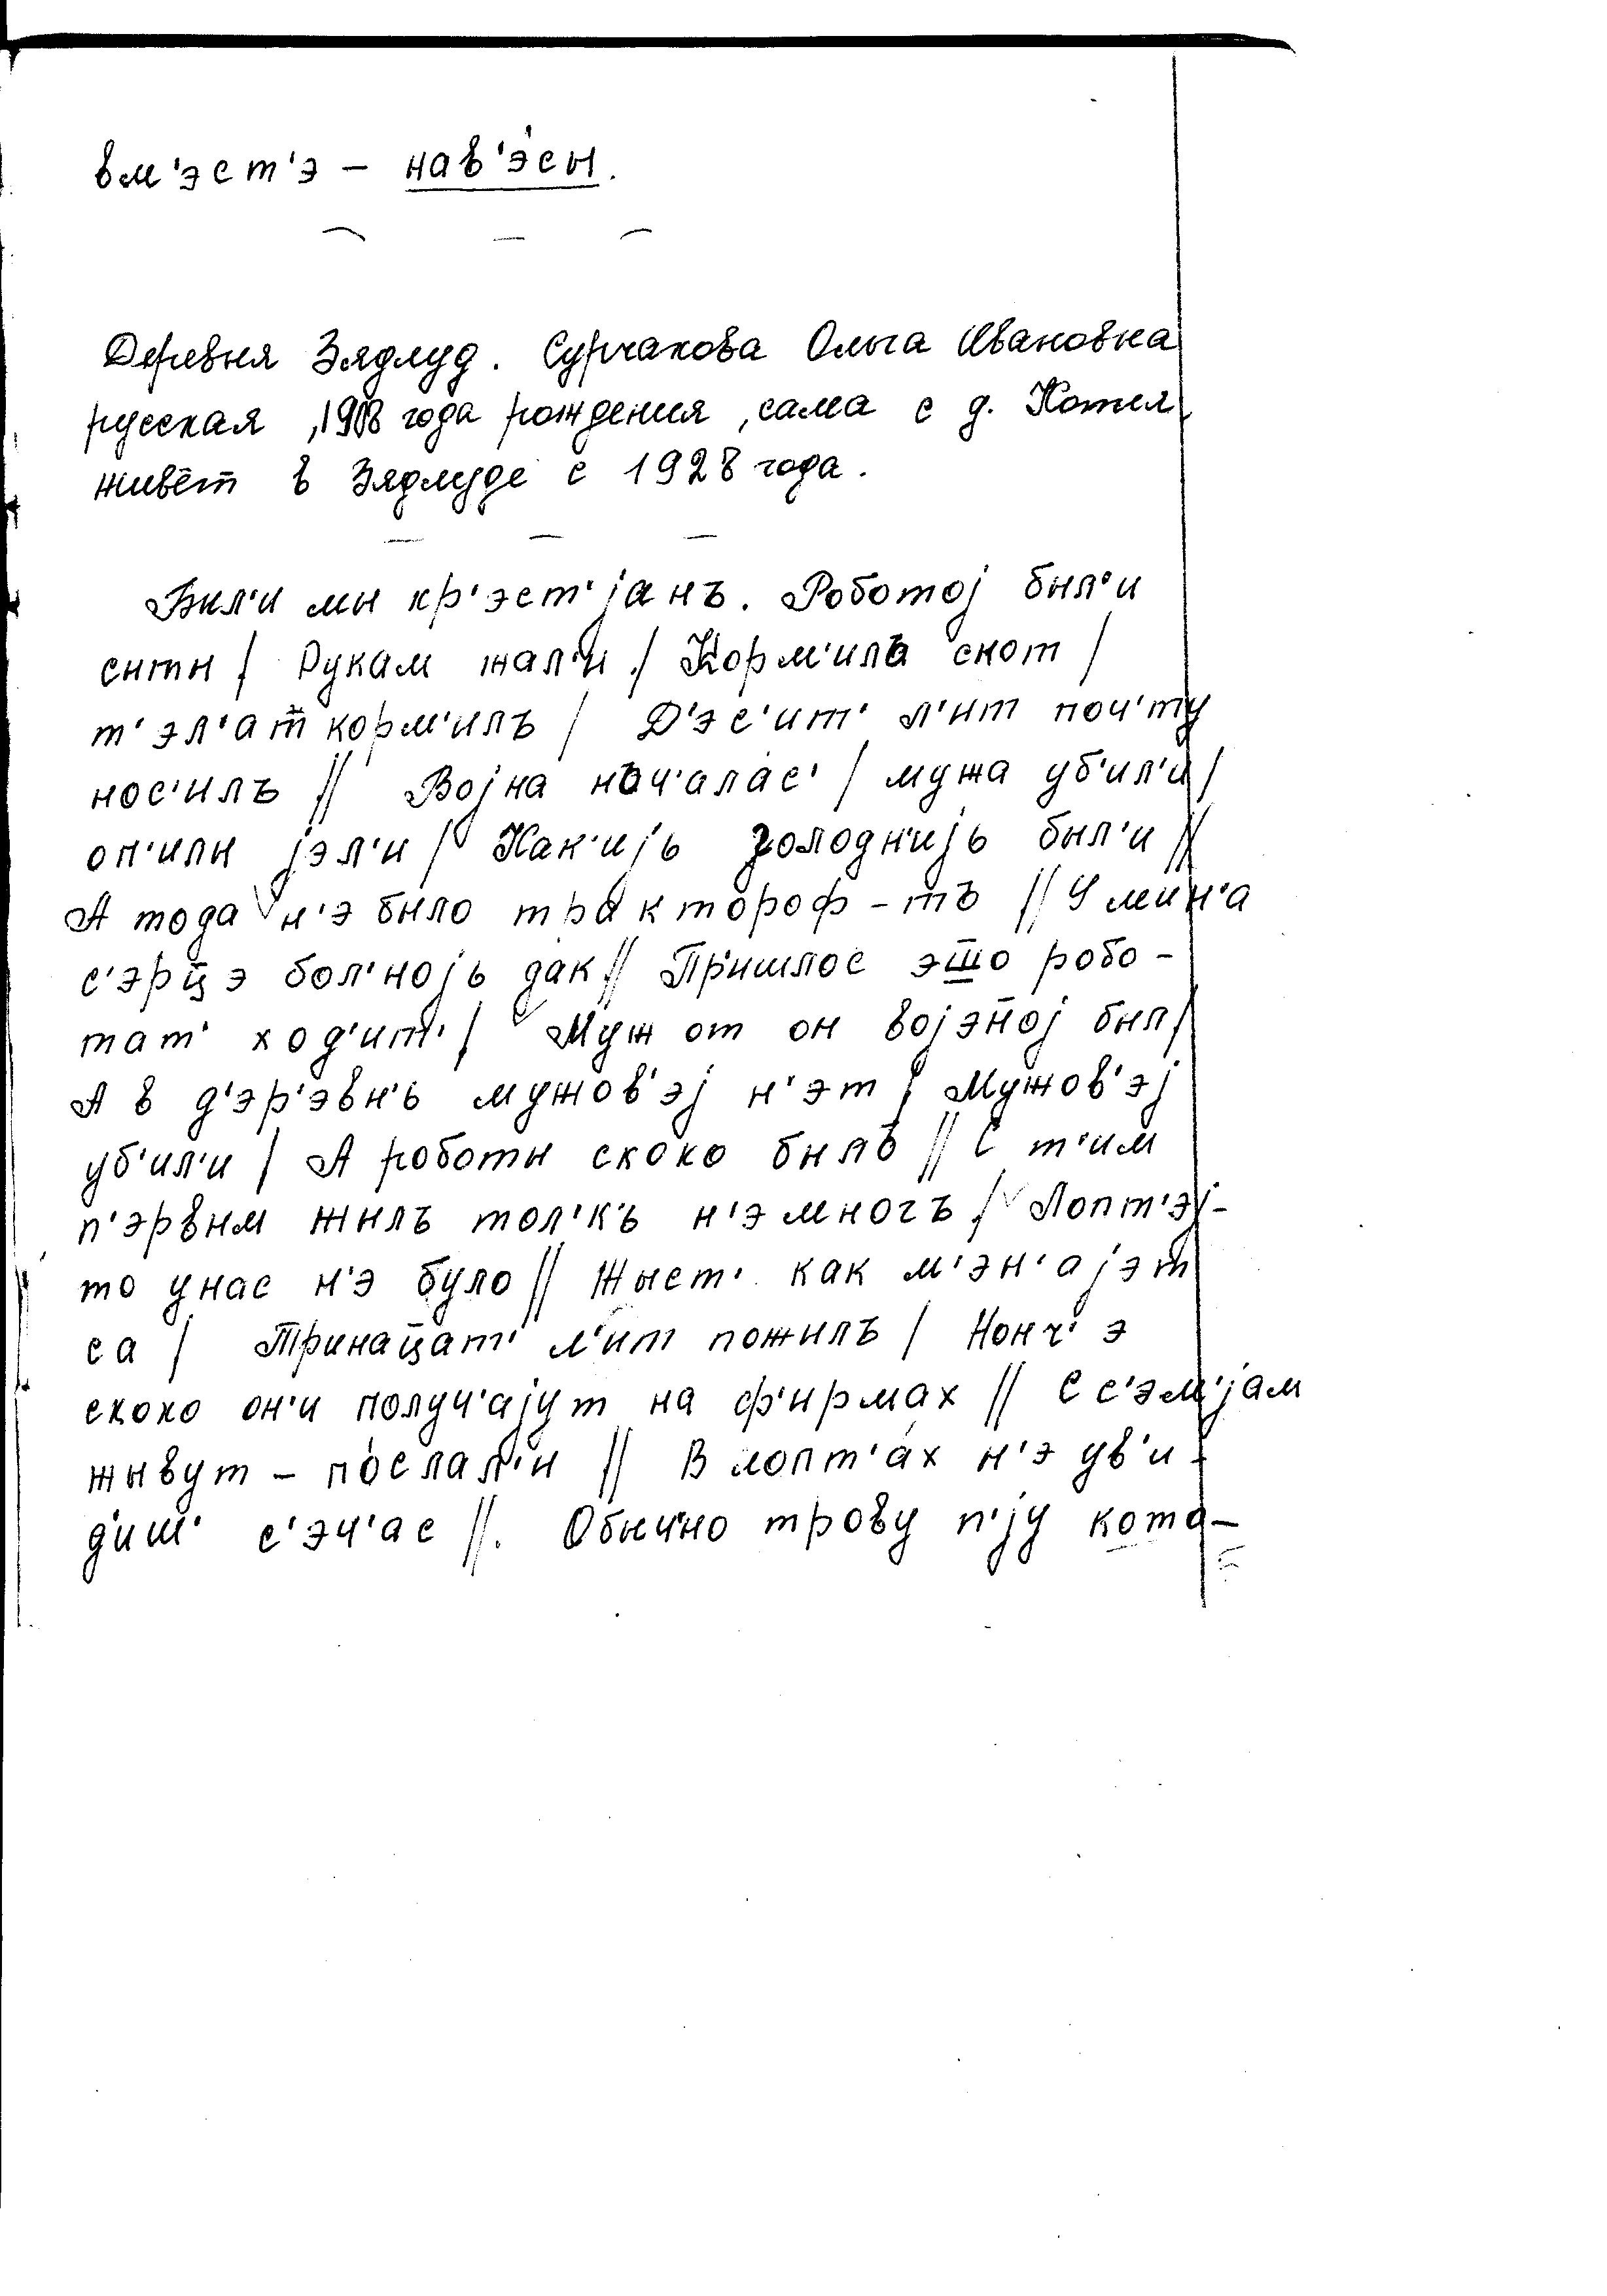 вм'эст'э – нав'эсы.
Деревня Зядлуд. Сурчакова Ольга Ивановна
русская, 1908 года рождения, сама с д. Котел
живёт в Зядлуде с 1928 года.
Были'и мы кр'эст'jанъ. Роботоj был'и
сыты / Рукам жал'и / Корм'ила скот /
т'эл'ат корм'илъ / Д'эс'ит' л'ит поч'ту
нос'илъ // Воjна нач'алас' / мужа уб'ил'и /
оп'илы jэл'и / Как'иjь голодныjь был'и //
А тода н'э было трактороф-тъ // У мин'а
с'эрц̄э бол'ноjь дак // Пришлос эт̄о робо-
тат' ход'ит' / Муж от он воjэн̄оj был /
А в д'эр'эвн'ь мужов'эj н'эт / Мужов'эj
уб'ил'и / А роботы скоко былъ // С т'им
п'эрвым жылъ тол'къ н'эмногъ / Лопт'эj-
то у нас н'э було // Жыст' как м'эн'аjэт
са / Тринац̄ат' л'ит пожилъ / Нонч'э
скоко он'и получ'аjут на ф'ирмах // С с'эм'jам
жывут – послал'и // В лопт'ах н'э ув'и-
д'иш' с'эч'ас //. Обычно трову п'jу кота-